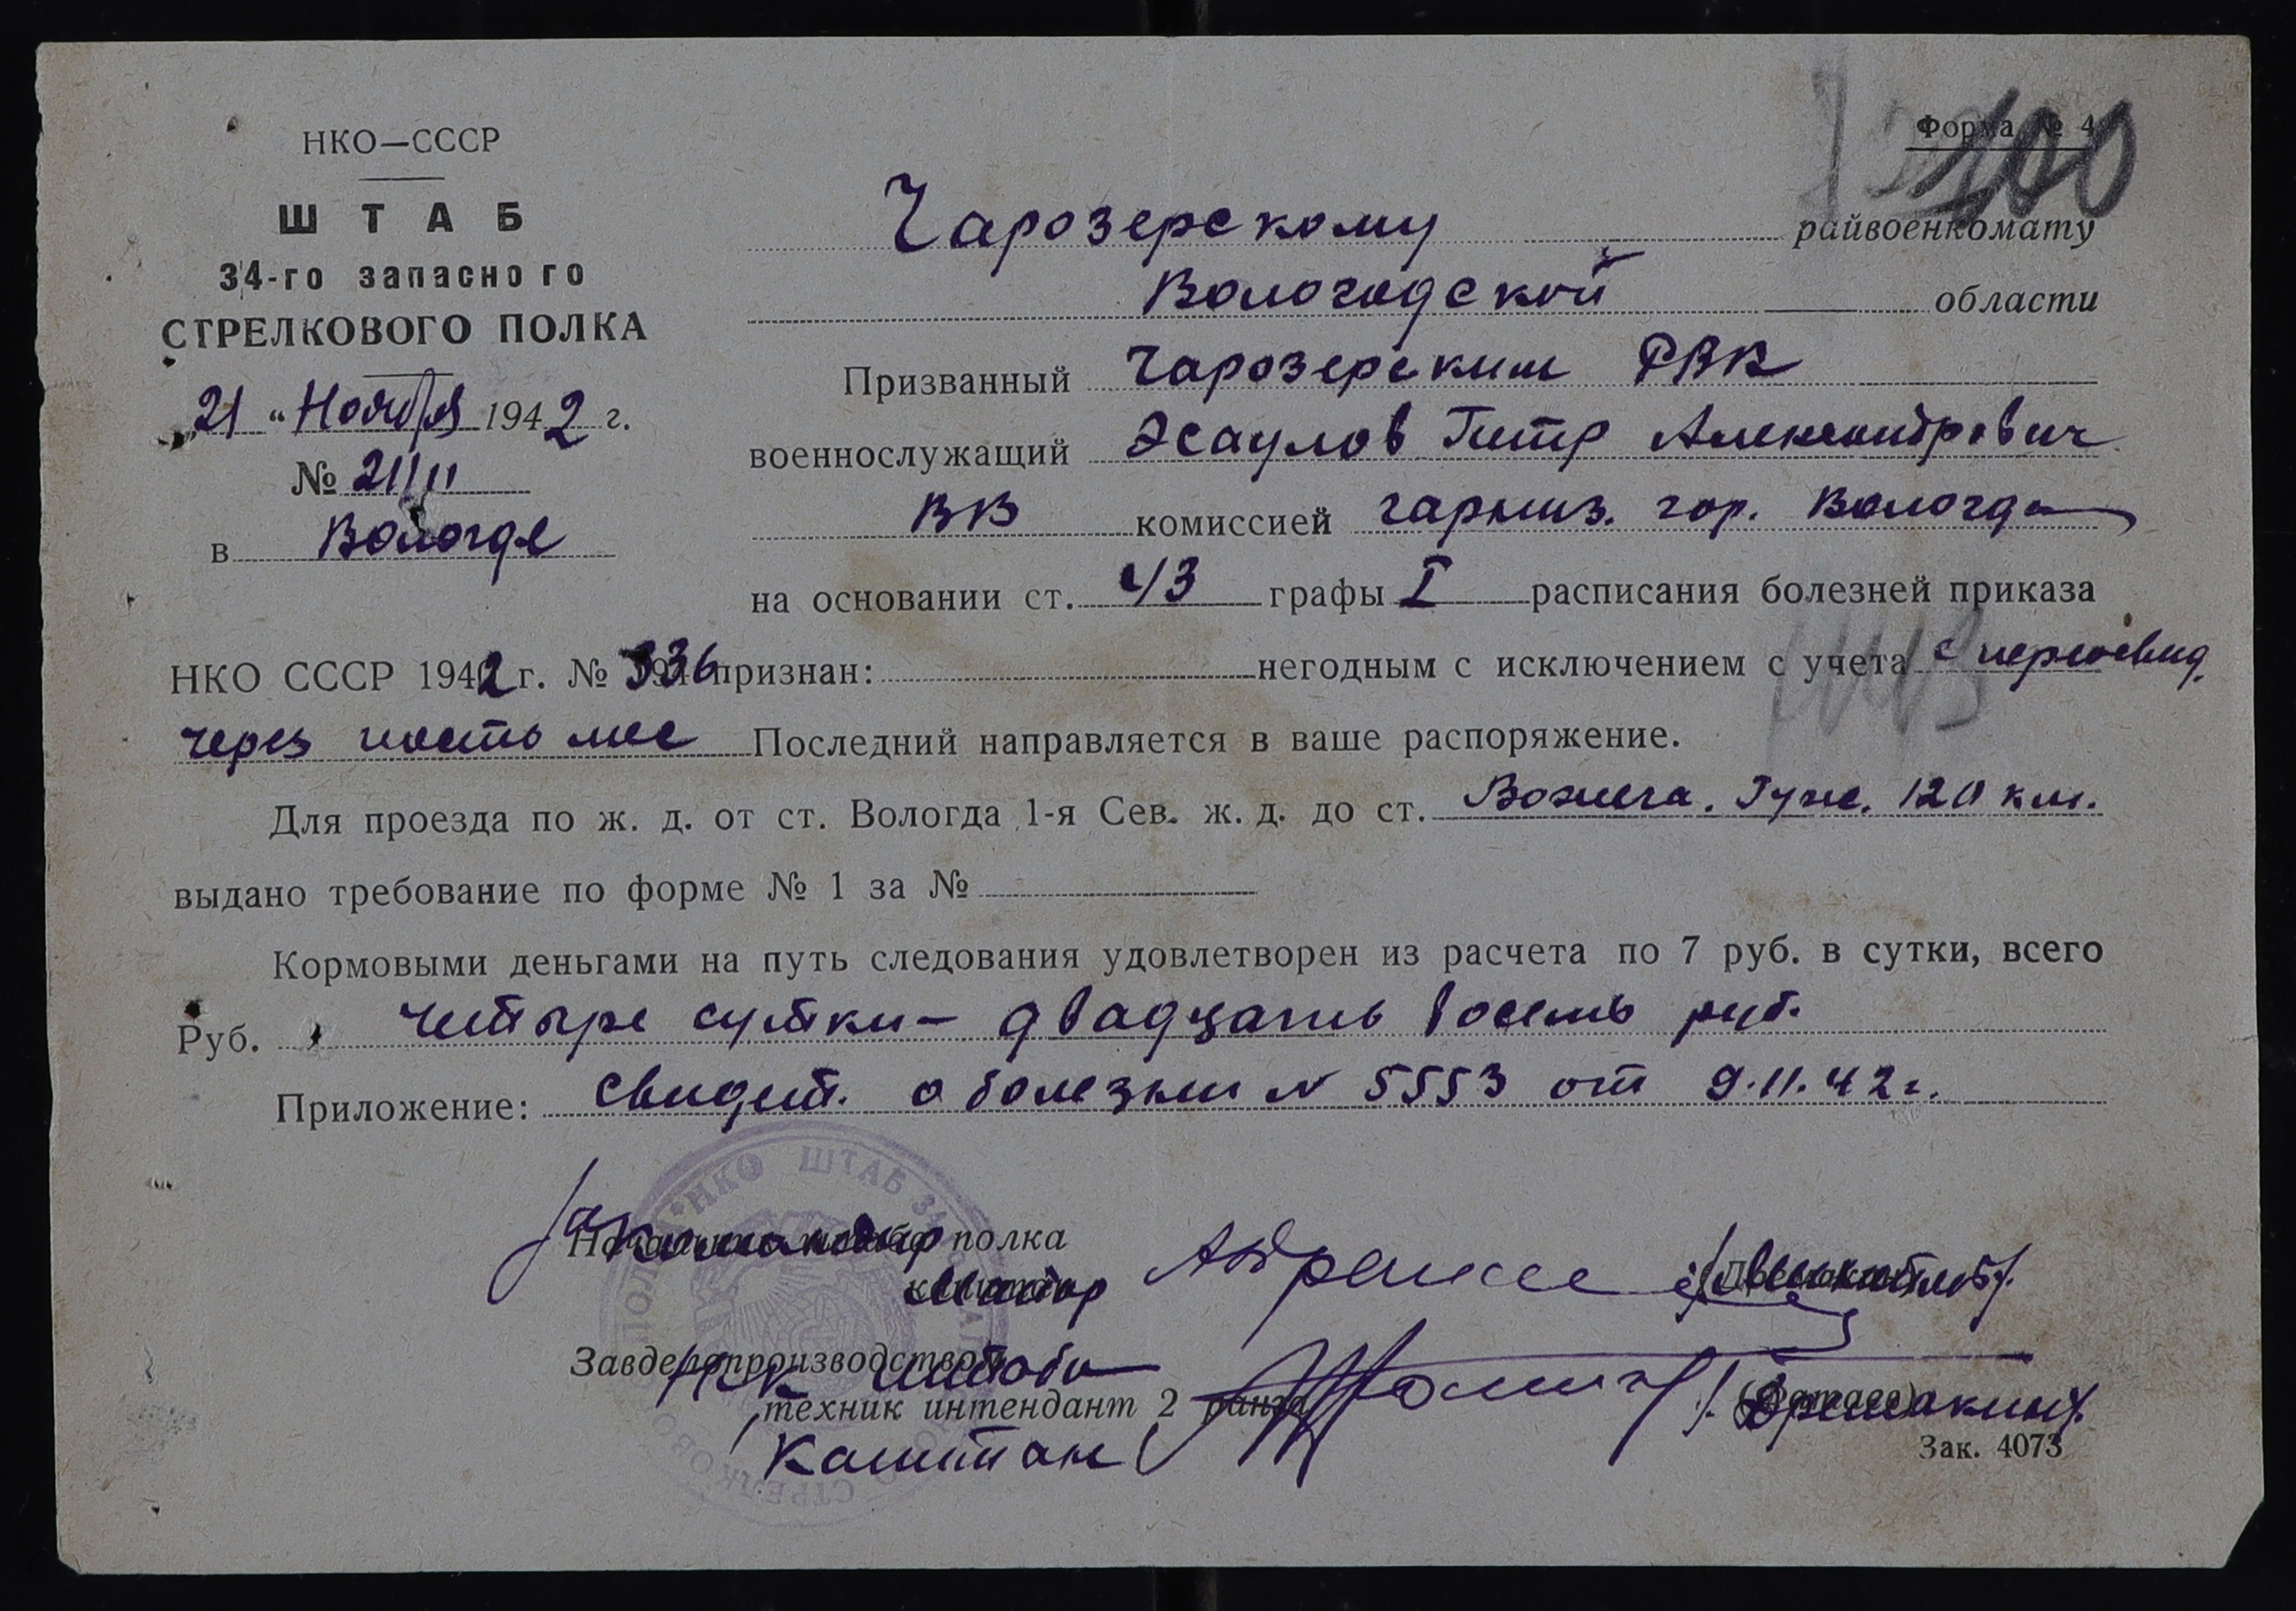 НКО—СССР
ШТАБ
34-го запасного
СТРЕЛКОВОГО ПОЛКА
„21“ Ноября 1942 г.
№ 21/11
в Вологде
Форма № 4
100
Чарозерскому райвоенкомату
Вологодской области
Призванный Чарозерским РВК
военнослужащий Эсаулов Петр Александрович
ВВ комиссией гарниз. гор. Вологда
на основании ст. 43 графы I расписания болезней приказа
НКО СССР 1942 г. № 336 признан: негодным с исключением с учета с переосвид.
через шесть мес Последний направляется в ваше распоряжение.
Для проезда по ж. д. от ст. Вологда 1-я Сев. ж. д. до ст. Вожега. Гуже. 120 км.
выдано требование по форме № 1 за №
Кормовыми деньгами на путь следования удовлетворен из расчета по 7 руб. в сутки, всего
Руб. Четыре сутки – двадцать восемь руб.
Приложение: Свидет. о болезни N 5553 от 9.11.42 г.
Командир полка
Майор
Завделопроизводством
Нач штаба
техник интендант 2 ранга
Капитан
Зак. 4073